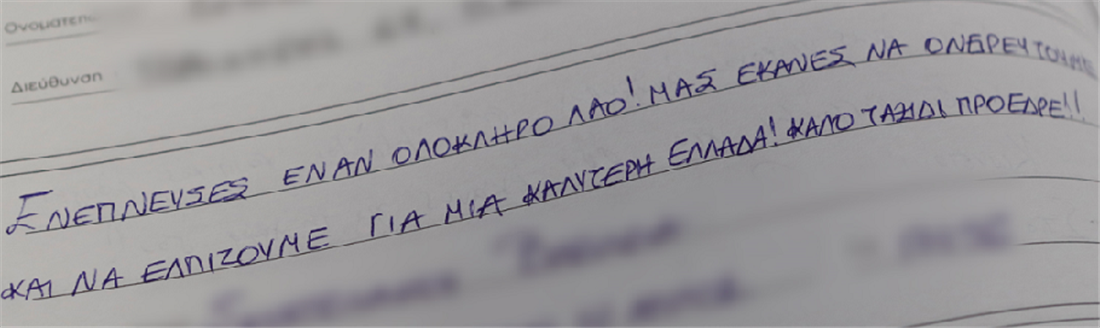 Ονοματεπ
Διεύθυνση
ΕΝΕΠΝΕΥΣΕΣ ΕΝΑΝ ΟΛΟΚΛΗΡΟ ΛΑΟ! ΜΑΣ ΕΚΑΝΕΣ ΝΑ ΟΝΕΙΡΕΥΤΟΥΜΕ
ΚΑΙ ΝΑ ΕΛΠΙΖΟΥΜΕ ΓΙΑ ΜΙΑ ΚΑΛΥΤΕΡΗ ΕΛΛΑΔΑ! ΚΑΛΟ ΤΑΞΙΔΙ ΠΡΟΕΔΡΕ!!